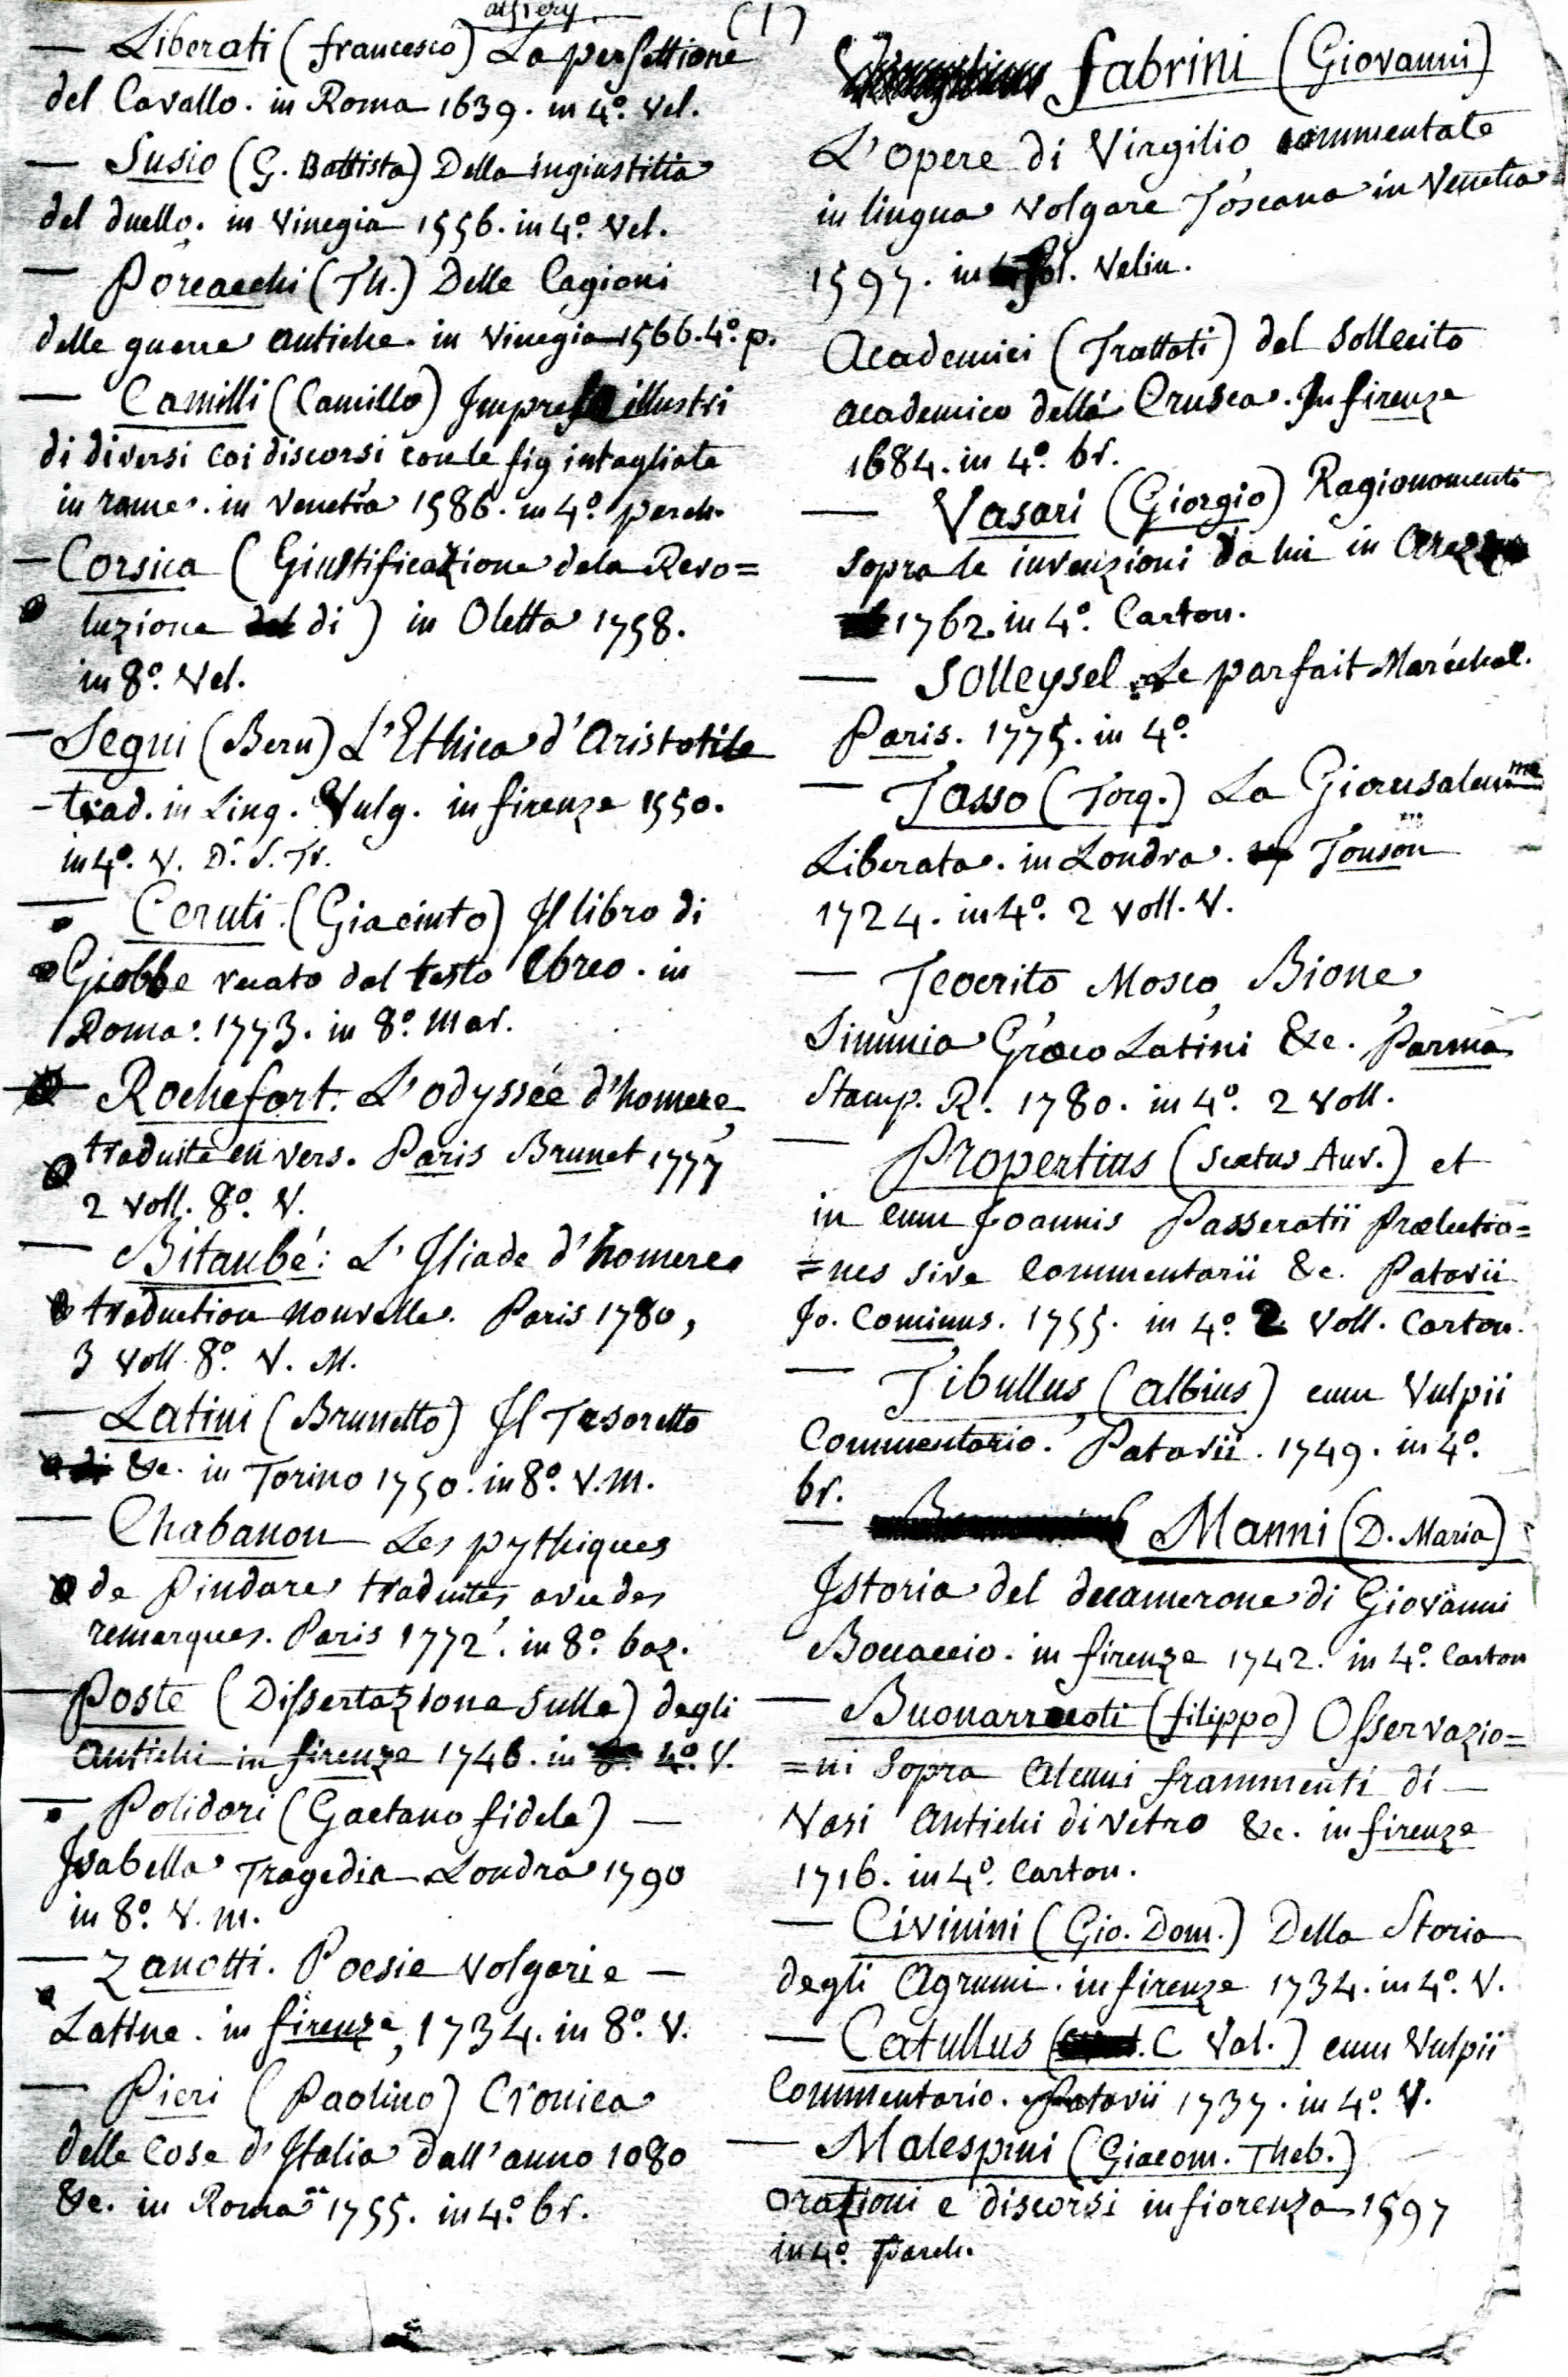 alfiery
(1)
— Liberati (francesco) La perfettione
del Cavallo. in Roma 1639. in 4.º Vel.
— Susio (G. Battista) Della ingiustitia
del duello. in Vinegia 1556. in 4.º Vel.
— Porcacchi (Th.) Delle Cagioni
delle guerre antiche. in Vinegia 1566. 4.º p.
— Camilli (Camillo) Imprese illustri
di diversi coi discorsi con le fig intagliate
in rame. in Venetia 1586. in 4.º parch.
— Corsica (Giustificazione dela Revo=
luzione di) in Oletta 1758.
in 8.º Vel.
— Segni (Bern) L'Ethica d'Aristotile
trad. in Ling. Vulg. in firenze 1550.
in 4.º V. D. S. Tr.
— Ceruti. (Giacinto) Il libro di
Giobbe recato dal testo Ebreo. in
Roma. 1773. in 8.º mar.
— Rochefort. L'odyssée d'homere,
traduite en vers. Paris Brunet 1777
2 voll. 8.º V.
— Bitaubé: L'Iliade d'homere
traduction nouvelle. Paris 1780,
3 voll. 8.º V. M.
— Latini (Brunetto) Il Tesoretto
&c. in Torino 1750. in 8.º V. m.
— Chabanon Les pythiques
de Pindare traduites avec des
remarques. Paris 1772. in 8.º baz.
— Poste (Dissertazione sulle) degli
antichi in firenze 1746. in 4.º V.
— Polidori (Gaetano fidele) —
Isabella Tragedia Londra 1790
in 8.º V. m.
— Zanotti. Poesie volgari e —
Latine. in firenze, 1734. in 8.º V.
— Pieri (Paolino) Cronica
delle Cose d'Italia dall'anno 1080
&c. in Roma 1755. in 4.º br.
fabrini (Giovanni)
L'opere di Virgilio commentate
in lingua volgare Toscana in Venetia
1597. in fol. Velin.
Academici (Trattati) del Sollecito
academico della Crusca. In firenze
1684. in 4.º br.
— Vasari (Giorgio) Ragionamenti
sopra le invenzioni da lui in Arezzo
1762. in 4.º Carton.
— Solleysel Le parfait Maréchal.
Paris. 1775. in 4.º
— Tasso (Torq.) La Gierusalemme
Liberata. in Londra. Tonson
1724. in 4.º 2 voll. V.
— Teocrito Mosco Bione
Simmia Græco Latini &c. Parma
Stamp. R. 1780. in 4.º 2 voll.
— Propertius (Sextus Aur.) et
in eum Joannis Passeratii Prælectio=
=nes sive Commentarii &c. Patavii
Jo. Cominus. 1755. in 4.º 2 Voll. Carton.
— Tibullus (albius) cum Vulpii
Commentario. Patavii. 1749. in 4.º
br.
— Manni (D. Maria)
Istoria del decamerone di Giovanni
Boccaccio. in firenze 1742. in 4.º Carton
— Buonarruoti (filippo) Osservazio=
=ni sopra alcuni frammenti di —
Vasi antichi di Vetro &c. in firenze
1716. in 4.º Carton.
— Civinini (Gio. Dom.) Della Storia
degli agrumi. in firenze 1734. in 4.º V.
— Catullus (C Val.) cum Vulpii
Commentario. Patavii 1737. in 4.º V.
— Malespini (Giacom. Theb.)
orationi e discorsi in fiorenza 1597
in 4.º Parch.